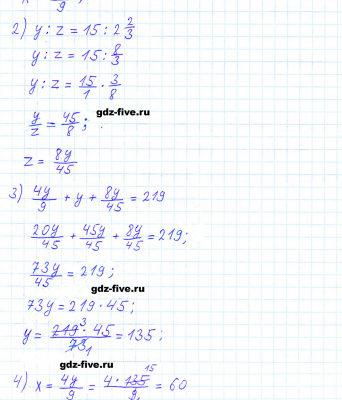 9
2) y : z = 15 : 2 2/3
y : z = 15 : 8/3
y : z = 15/1 · 3/8
gdz-five.ru
y/z = 45/8 ;
z = 8y/45
3) 4y/9 + y + 8y/45 = 219
20y/45 + 45y/45 + 8y/45 = 219;
73y/45 = 219 ;
gdz-five.ru
73y = 219 · 45 ;
y = 219³ · 45/73₁ = 135 ;
gdz-five.ru
4) x = 4y/9 = 4 · 135¹⁵/9₁ = 60